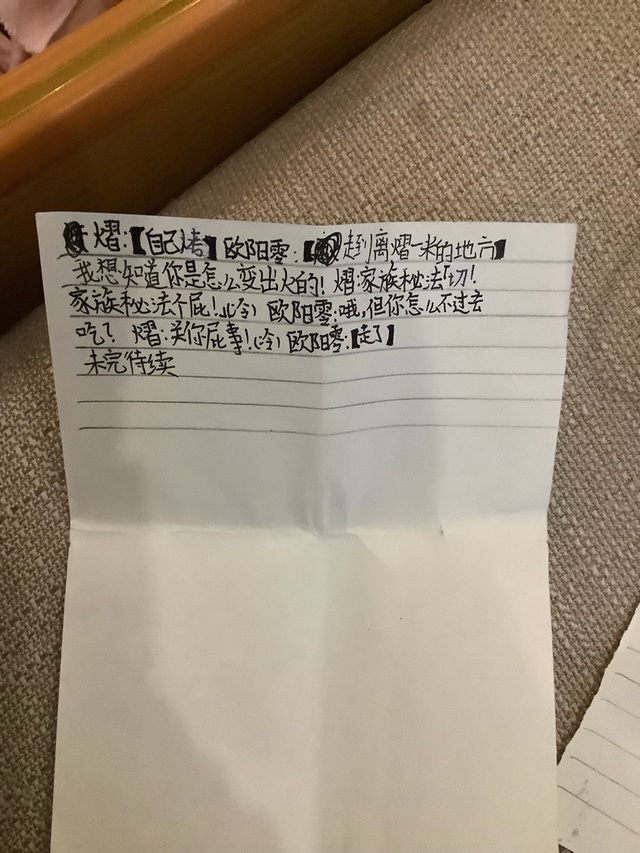 熠:【自己烤】欧阳零:【走到离熠一米的地方】
我想知道你是怎么变出火的!熠:家族秘法「切!
家族秘法个屁!(冷)欧阳零:哦,但你怎么不过去
吃?熠:关你屁事!(冷)欧阳零:【走了】
未完待续